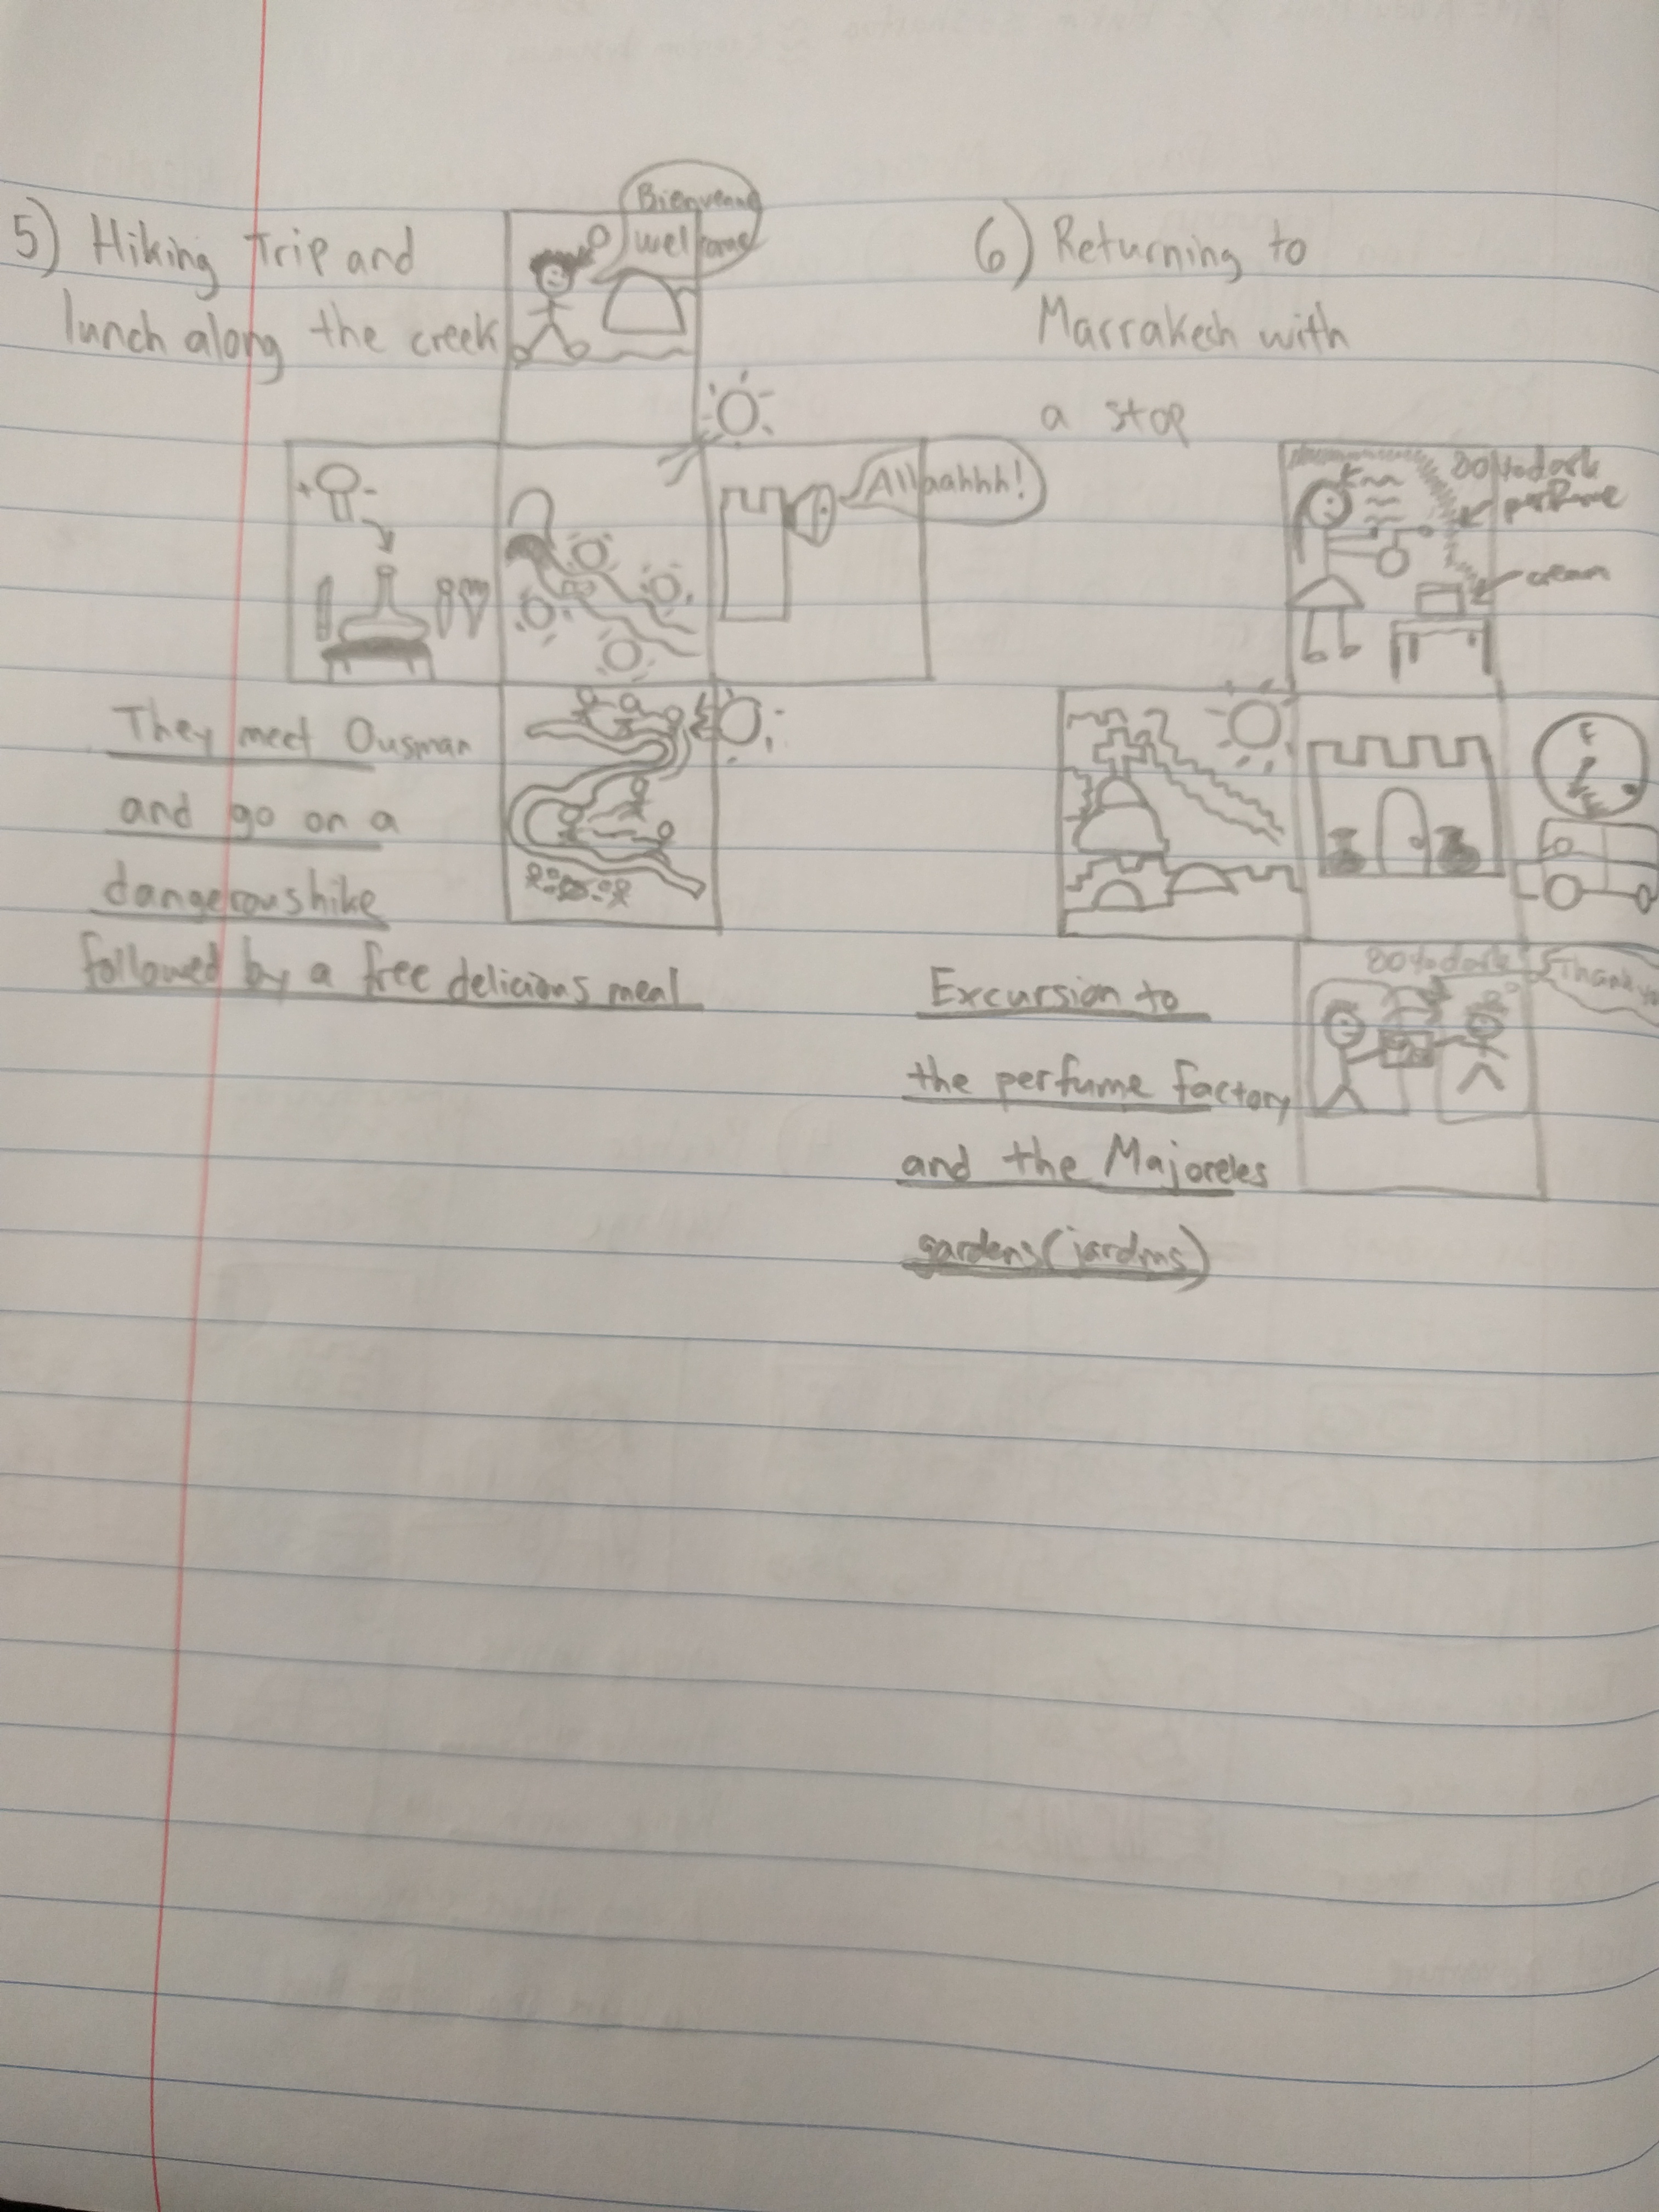 5) Hiking Trip and
lunch along the creek
Bienvenue
welcome
Allaahhh!
They meet Ousman
and go on a
dangerous hike
followed by a free delicious meal
6) Returning to
Marrakech with
a stop
80% dark
perfume
cream
F
E
80% dark
Thank you
Excursion to
the perfume factory
and the Majoreles
gardens (jardins)